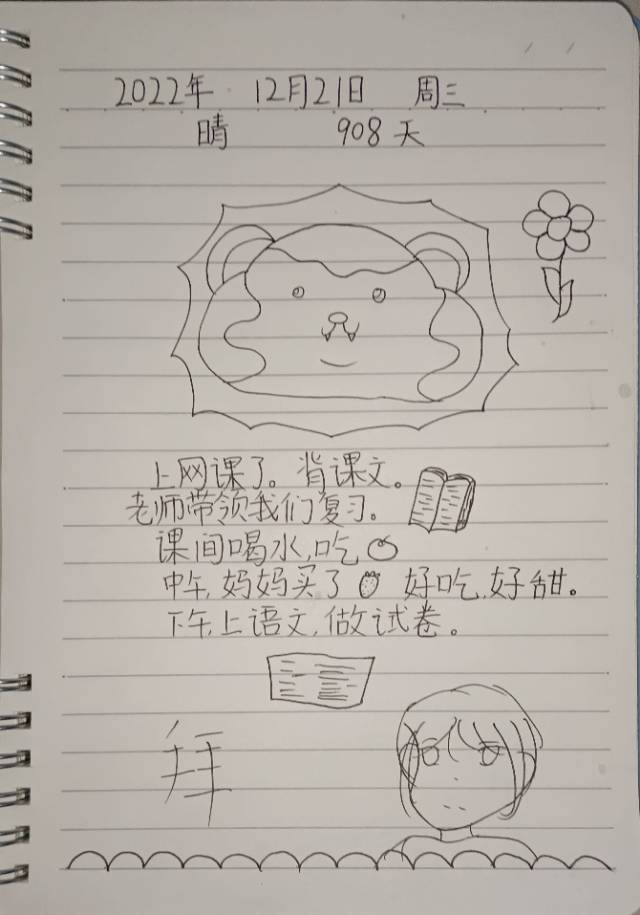 2022年 12月21日 周三
晴 908天
上网课了。背课文。
老师带领我们复习。
课间喝水,吃
中午,妈妈买了 好吃,好甜。
下午,上语文,做试卷。
拜